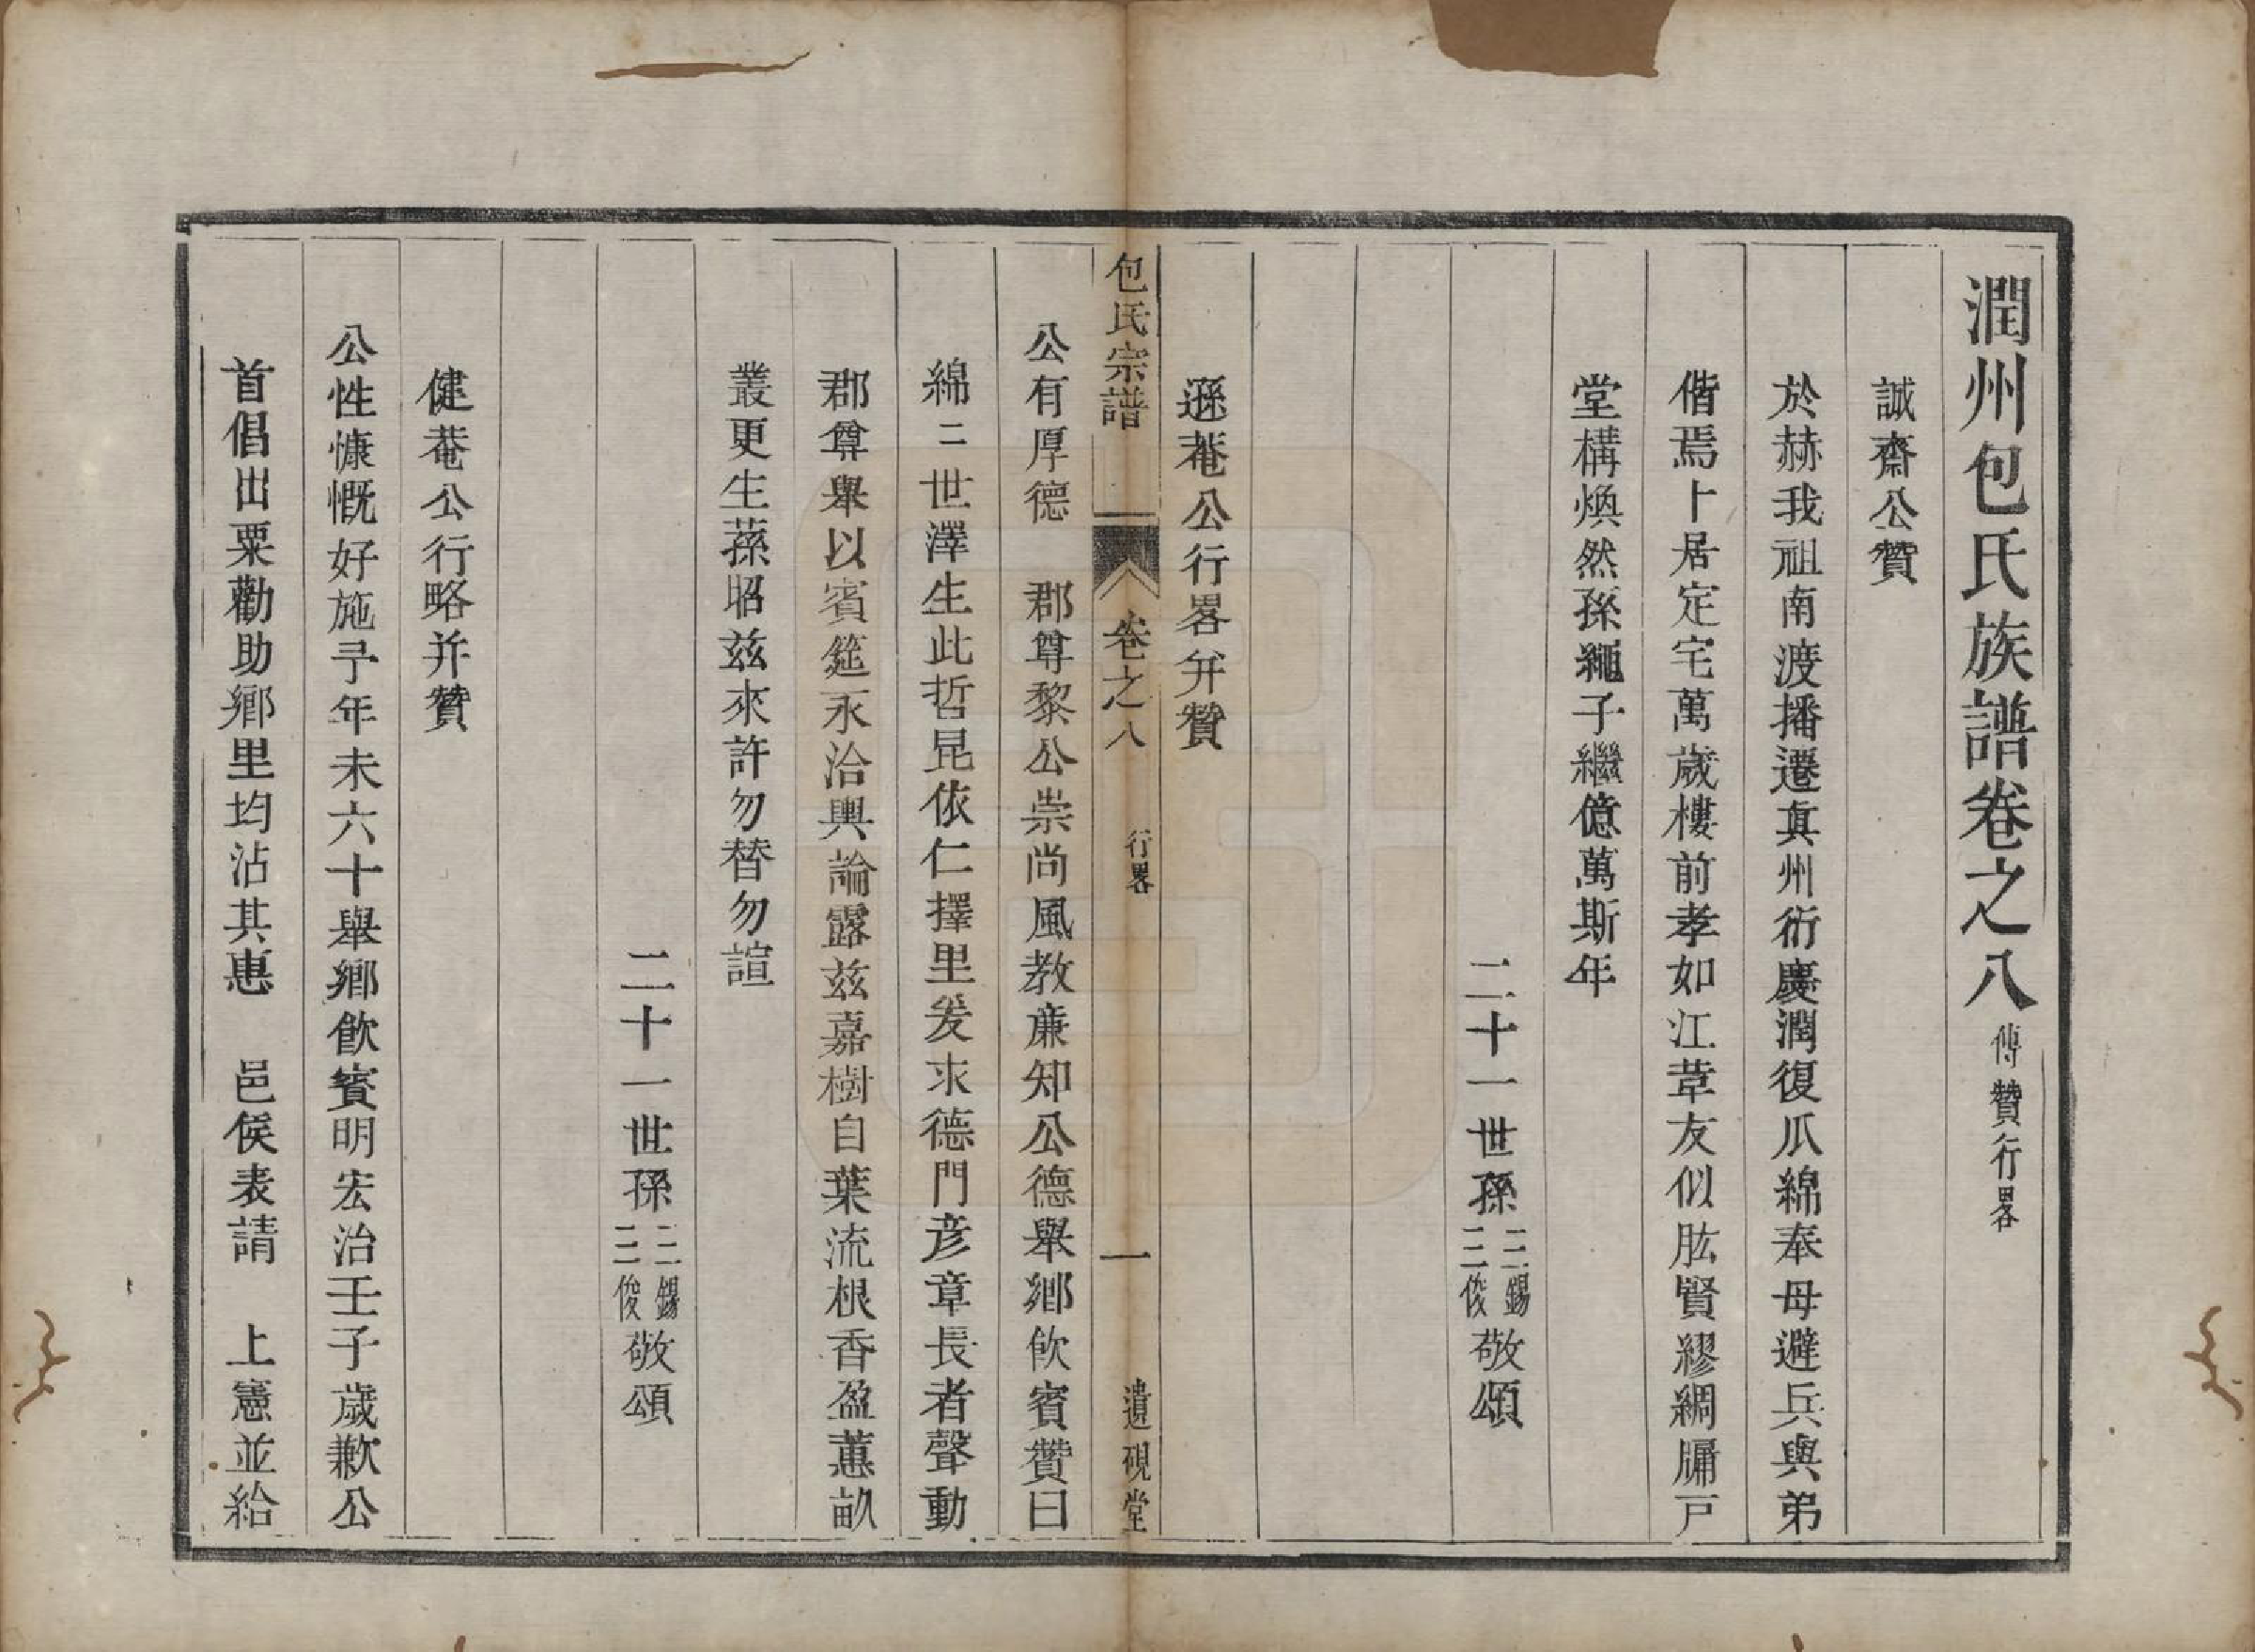 潤州包氏族譜卷之八 傳贊行畧
誠齋公贊
於赫我祖南渡播遷真州衍慶潤復瓜綿奉母避兵與弟
偕焉卜居定宅萬歲樓前孝如江革友似肱賢繆綢牖戸
堂構煥然孫繩子繼億萬斯年
二十一世孫三錫三俊敬頌
遜菴公行畧并贊
包氏宗譜 卷之八 行畧 一 遺硯堂
公有厚德 郡尊黎公崇尚風教廉知公德舉鄉飲賓贊曰
綿二世澤生此哲昆依仁擇里爰求德門彥章長者聲動
郡尊舉以賓筵永洽輿論露兹嘉樹自葉流根香盈蕙畝
叢更生蓀昭兹來許勿替勿諠
二十一世孫三錫三俊敬頌
健菴公行略并贊
公性慷慨好施予年未六十舉鄉飲賓明宏治壬子歲歉公
首倡出粟勸助鄉里均沾其惠 邑侯表請 上憲並給